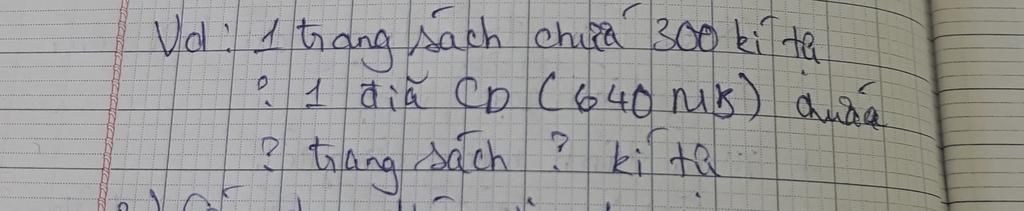 Vd: 1 trang sách chứa 300 kí tự
? 1 đĩa CD (640 MB) chứa
? trang sách ? kí tự